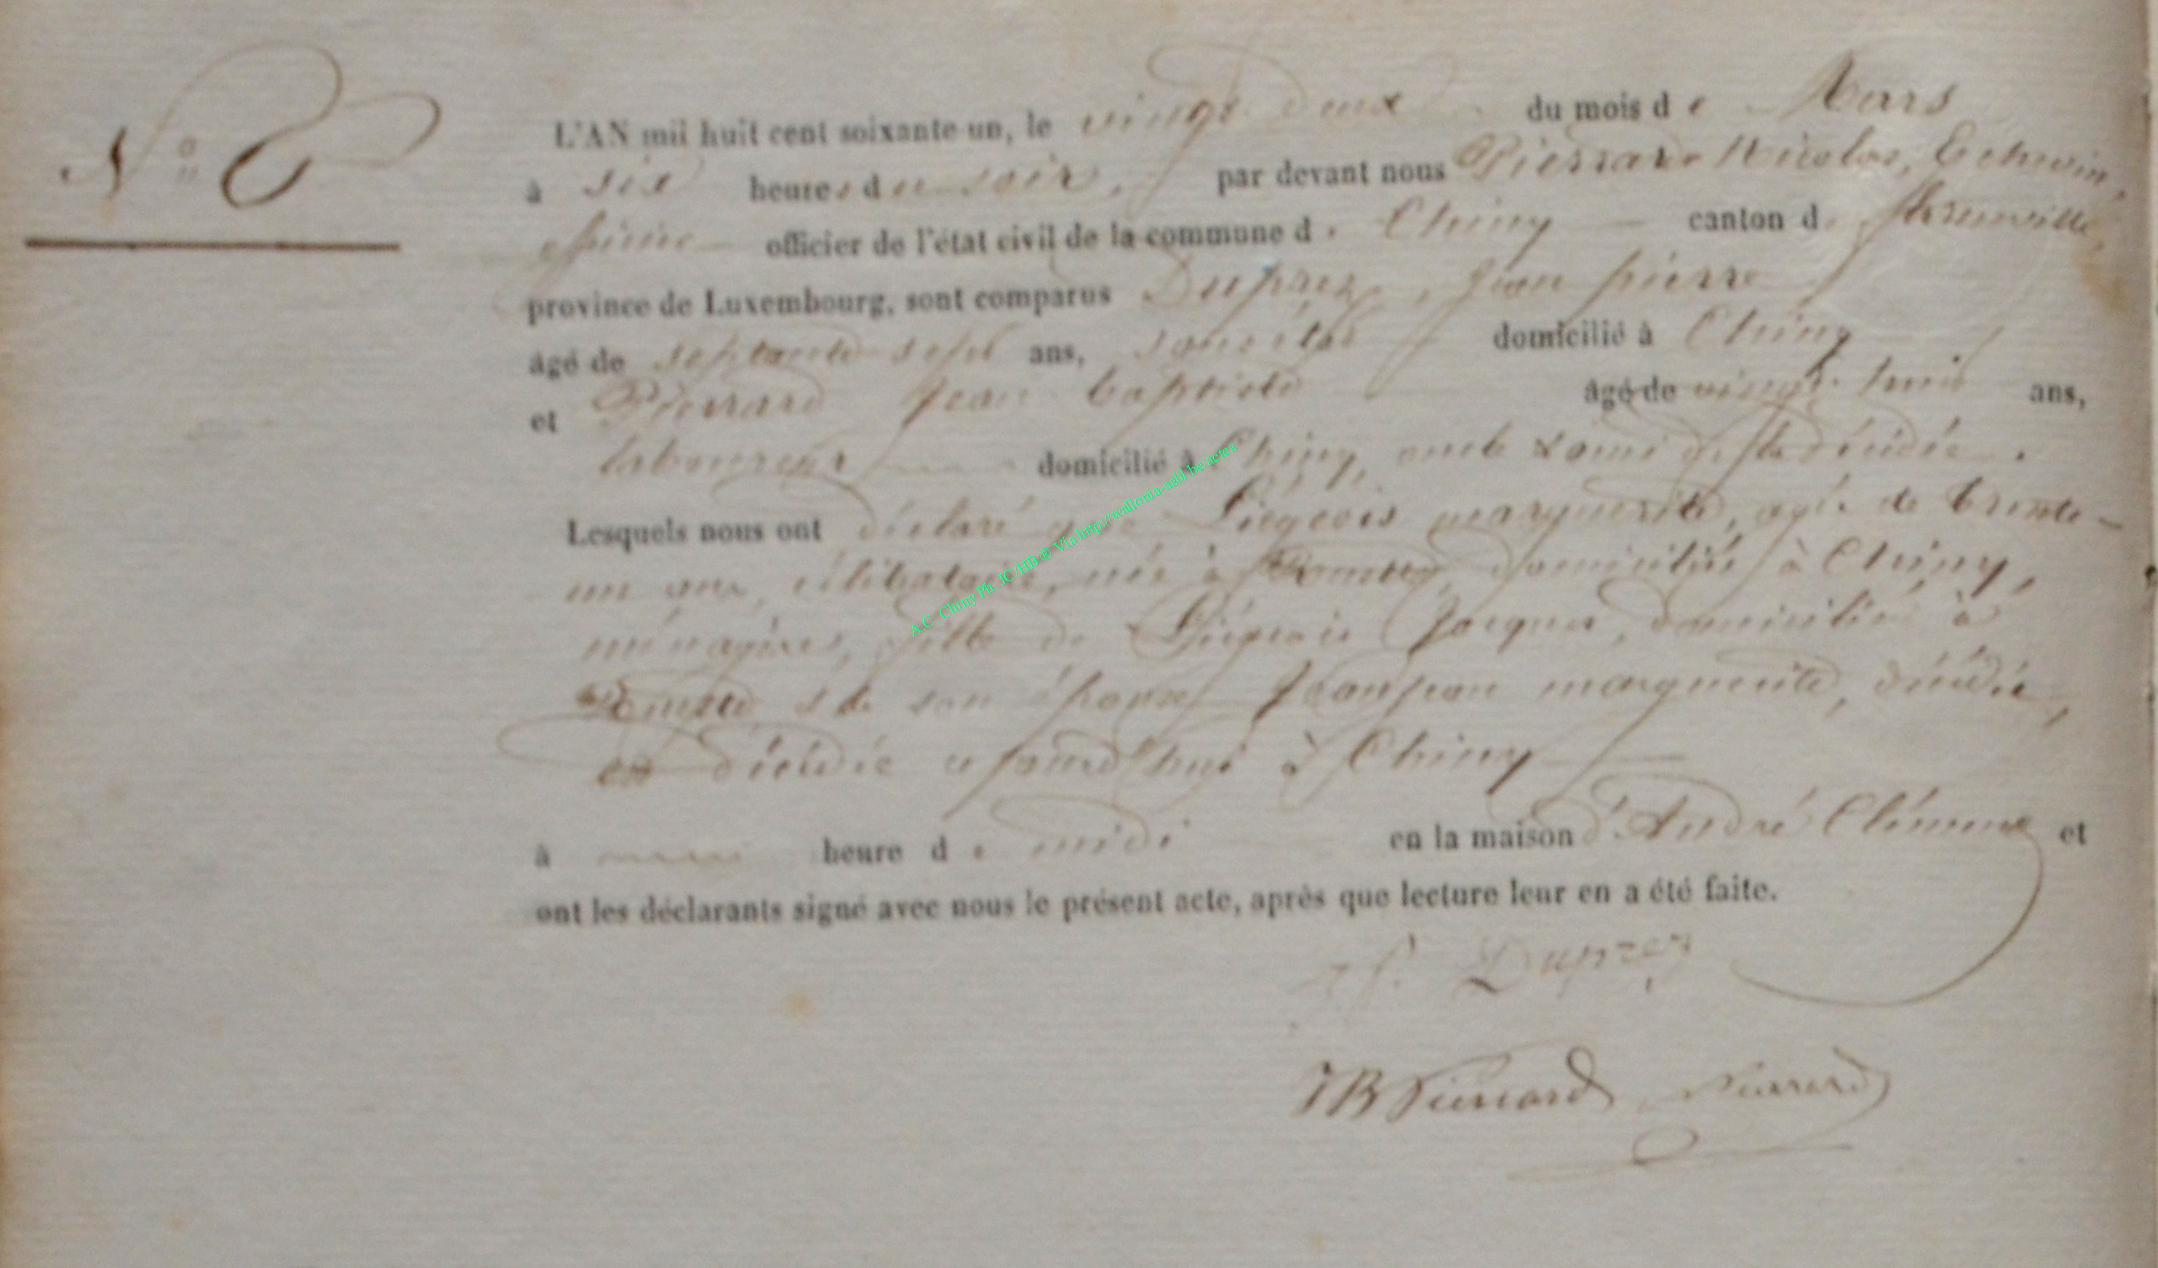 N° 6
L'AN mil huit cent soixante-un, le vingt deux du mois de Mars
à six heures du soir, par devant nous Pierrard Nicolas, Echevin,
officier de l'état civil de la commune de Chiny canton de florenville,
province de Luxembourg, sont comparus Duprez, Jean pierre
âgé de septante sept ans, sans état domicilié à Chiny
et Pierrard Jean baptiste âgé de vingt huit ans,
laboureur domicilié à Chiny, amis de la décédée.
Lesquels nous ont déclaré que Liégeois marguerite, agée de trente-
un ans, célibataire, née à domiciliée à Chiny,
ménagère, fille de Liégeois Jacques, domicilié à
& de son épouse Jeanjean marguerite, décédée,
est décédée ce jourd'hui à Chiny
à heure de midi en la maison d'André Clément et
ont les déclarants signé avec nous le présent acte, après que lecture leur en a été faite.
Duprez
JB Pierrard Pierrard
A.C. Chiny Ph. JC/HB @ Via http://wallonia-asbl.be actes